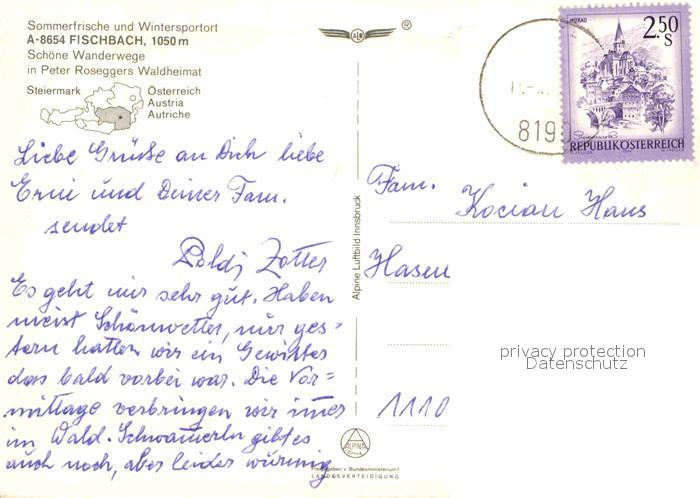 Sommerfrische und Wintersportort
A-8654 FISCHBACH, 1050 m
Schöne Wanderwege
in Peter Roseggers Waldheimat
Steiermark
Österreich
Austria
Autriche
Liebe Grüße an Dich liebe
Erni und Deiner Fam.
sendet
Poldj Zotter
Es geht mir sehr gut. Haben
meist Schönwetter, nur ges-
tern hatten wir ein Gewitter
das bald vorbei war. Die Vor-
mittage verbringen wir immer
im Wald. Schwamerln gibt es
auch noch, aber leider wurmig
Alpine Luftbild Innsbruck
ALPINE
Freigegeben v. Bundesministerium f.
LANDESVERTEIDIGUNG
®
819
MURAU
2.50
S
REPUBLIK ÖSTERREICH
Fam.
Kocian Hans
Hasen
1110
privacy protection
Datenschutz